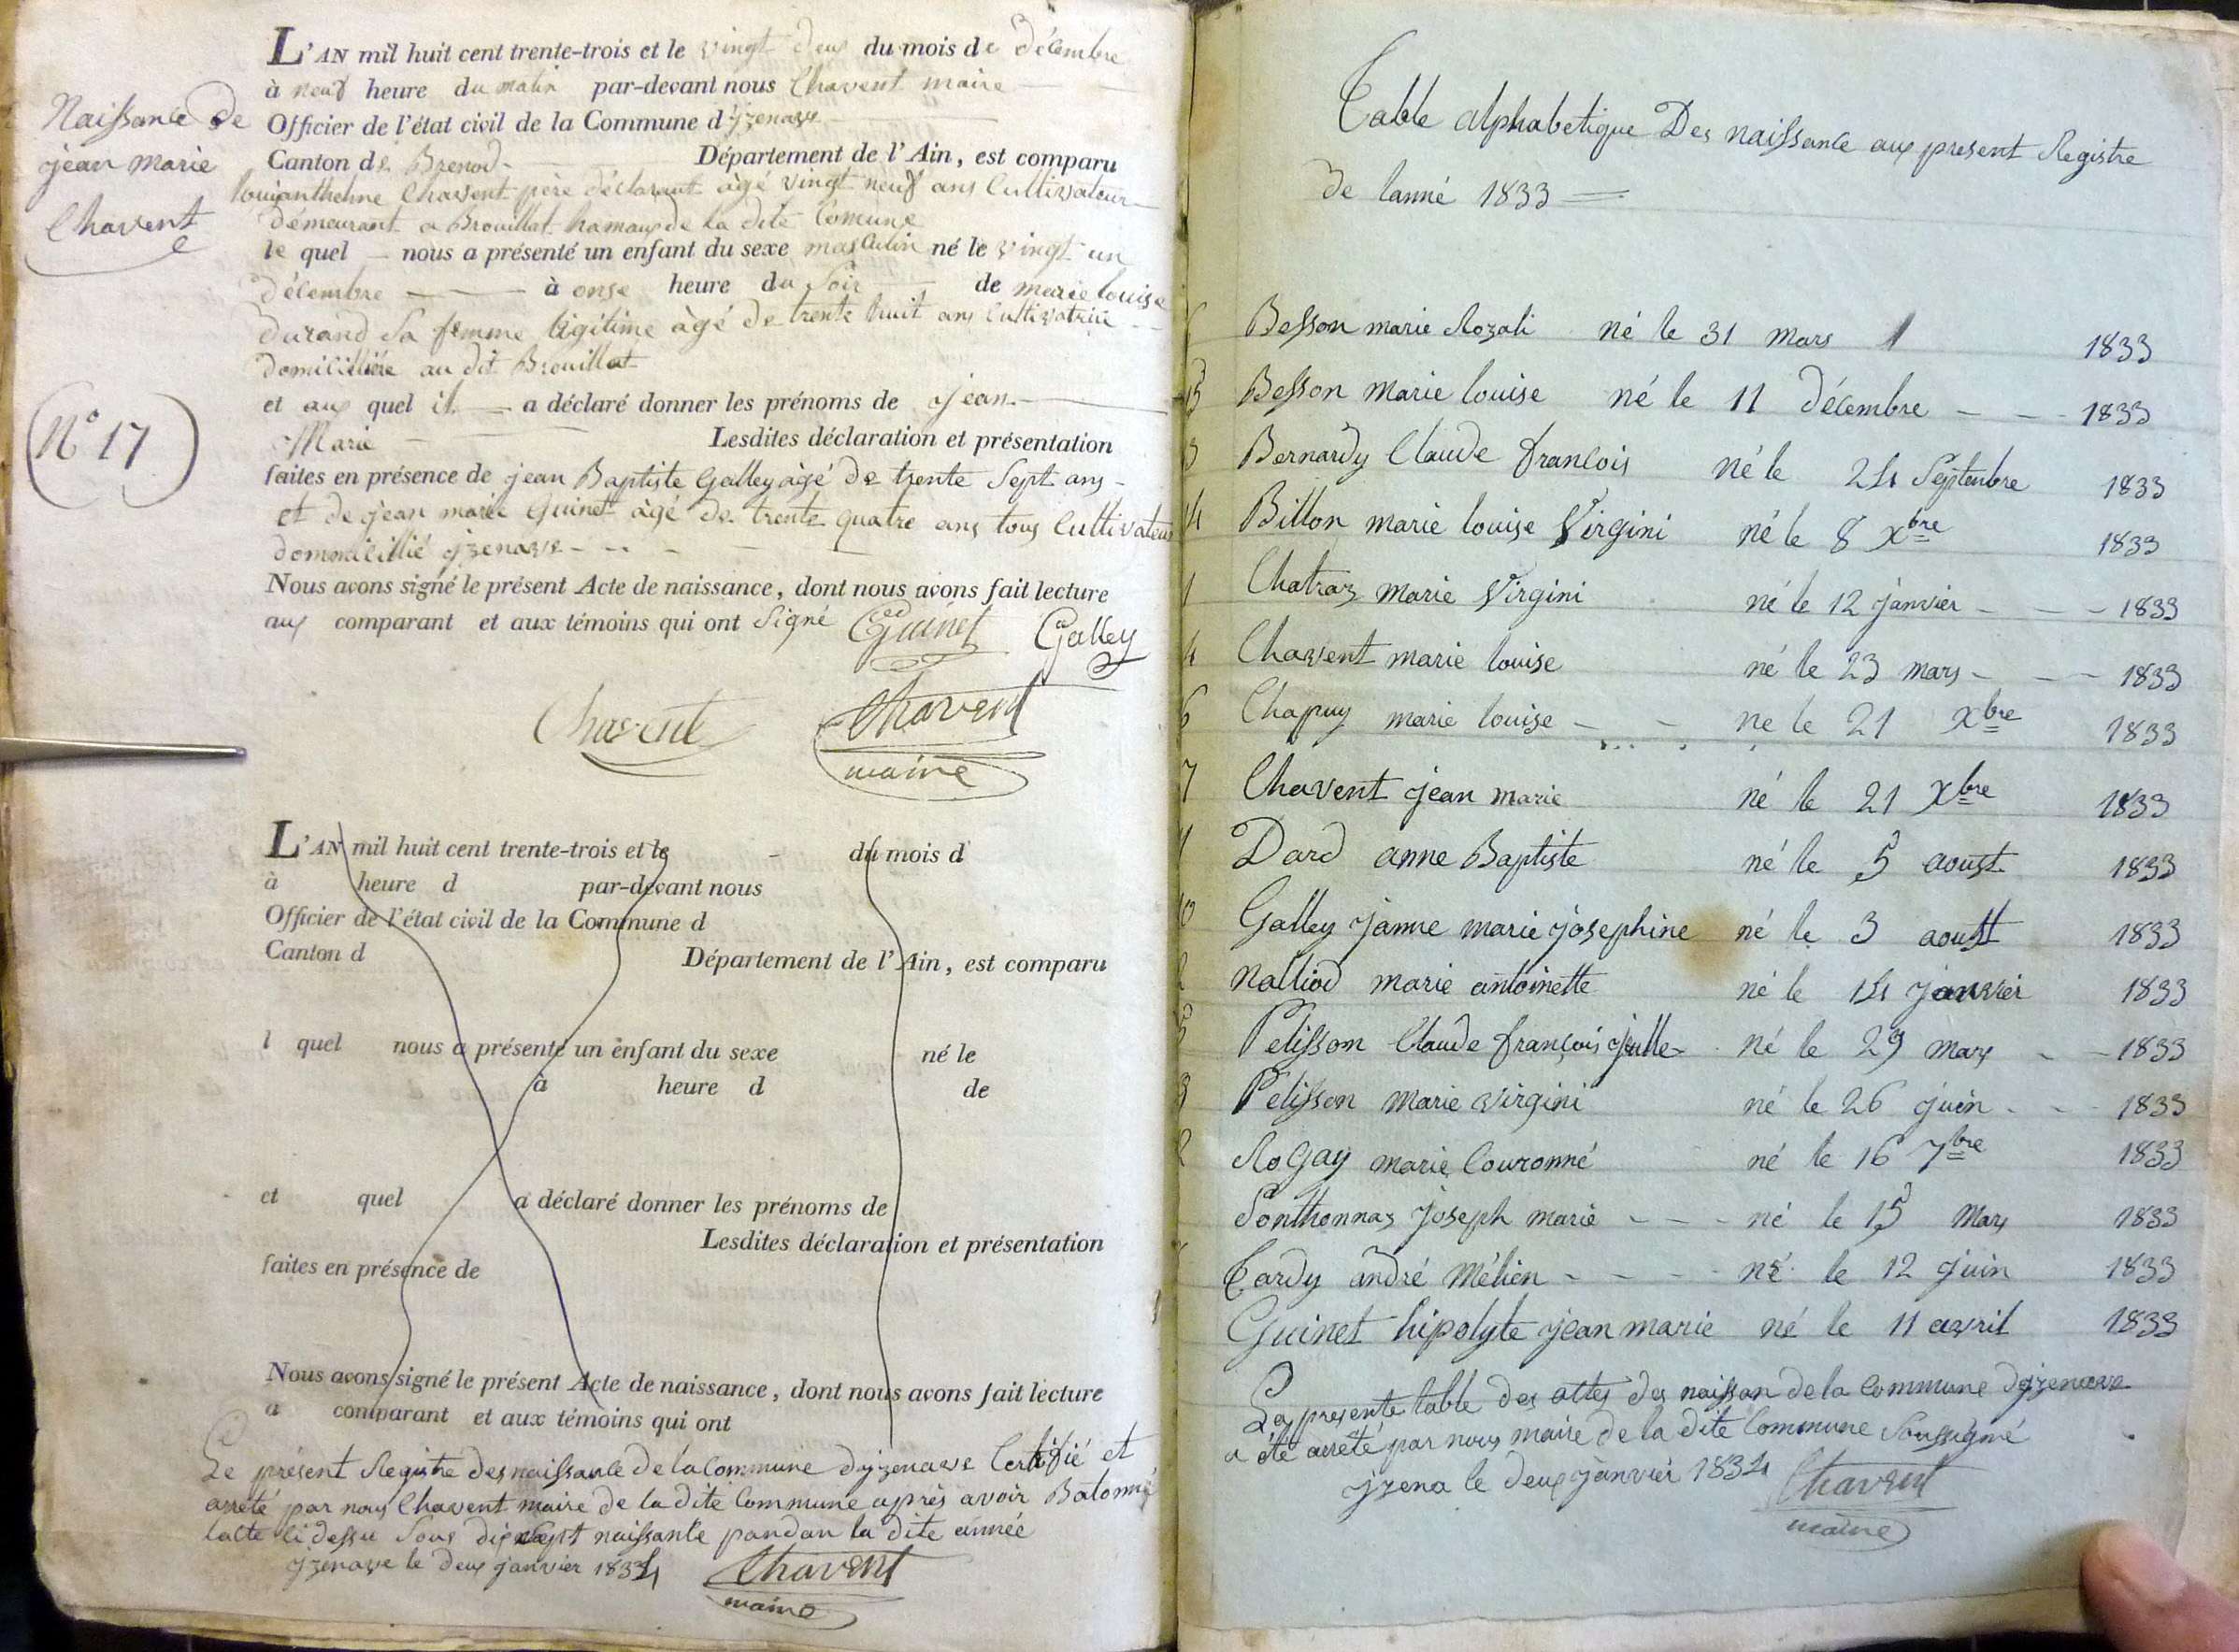 L'AN mil huit cent trente-trois et le vingt deux du mois de décembre
à neuf heure du matin par-devant nous Chavent maire
Officier de l'état civil de la Commune d'yzenave
Canton de Brenod Département de l'Ain, est comparu
Chavent père déclarant àgé vingt neuf ans Cultivateur
démeurant a Brouillat hamaux de la dite Comune
le quel nous a présenté un enfant du sexe masculin né le vingt un
décembre à onse heure du Soir de marie louise
durand Sa femme légitime àgé de trente huit ans Cultivatrice
au dit Brouillat
et aux quel il a déclaré donner les prénoms de jean
Marie Lesdites déclaration et présentation
faites en présence de jean Baptiste Galley àgé de trente Sept ans
et de jean marie Guinet àgé de trente quatre ans tous Cultivateur
yzenave
Nous avons signé le présent Acte de naissance, dont nous avons fait lecture
aux comparant et aux témoins qui ont Signé Guinet Galley
Chavent Chavent
maire
Naissance de
jean marie
Chavent
N° 17
L'AN mil huit cent trente-trois et le du mois d
à heure d par-devant nous
Officier de l'état civil de la Commune d
Canton d Département de l'Ain, est comparu
l quel nous a présenté un enfant du sexe né le
à heure d de
et quel a déclaré donner les prénoms de
Lesdites déclaration et présentation
faites en présence de
Nous avons signé le présent Acte de naissance, dont nous avons fait lecture
a comparant et aux témoins qui ont
Le présent Registre des naissance de la Commune d'yzenave Certifié et
arreté par nous Chavent maire de la dite Commune après avoir Batonné
lacte Ci dessu Sous naissance pandan la dite année
yzenave le deux janvier 1834 Chavent
maire
Table alphabetique Des naissance aux present Registre
de lanné 1833
Besson marie Rozali né le 31 mars 1833
15 Besson marie louise né le 11 décembre 1833
Bernardy Claude francois né le 24 Septenbre 1833
14 Billon marie louise Virgini né le 8 Xbre 1833
1 Chatraz marie Virgini né le 12 janvier 1833
4 Chavent marie louise né le 23 mars 1833
6 Chapuy marie louise né le 21 Xbre 1833
7 Chavent jean marie né le 21 Xbre 1833
Dard anne Baptiste né le 5 aoust 1833
Galley janne marie josephine né le 3 aoust 1833
Nalliod marie antoinette né le 14 janvier 1833
Pelisson Claude françois né le 29 mars 1833
Pelisson marie virgini né le 26 juin 1833
Rogay marie Couronné né le 16 7bre 1833
Sonthonnaz joseph marie né le 15 Mars 1833
Tardy andré Mélien né le 12 juin 1833
Guinet hipolyte jean marie né le 11 avril 1833
La presente table des attes des naissan de la Commune d'yzenave
a été arreté par nous maire de la dite Commune Soussigné
yzena le deux janvier 1834 Chavent
maire